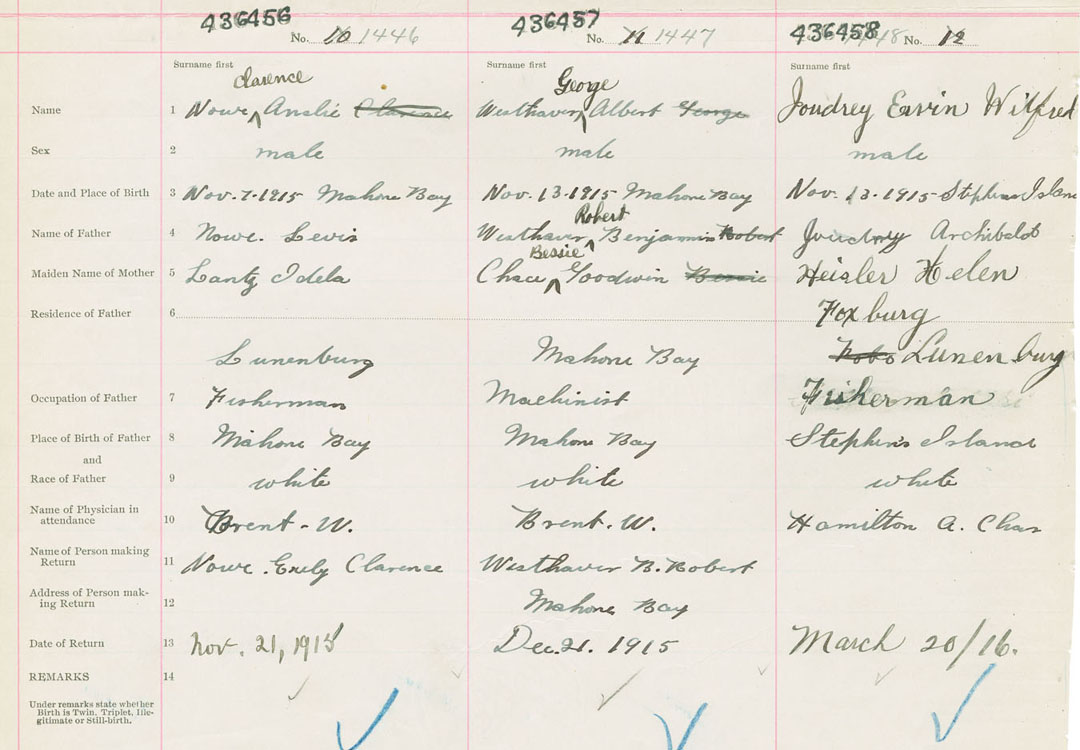 436456 436457 436458
No. 10 1446 No. 11 1447 1448 No. 12
Surname first Surname first Surname first
Clarence George
Name 1 Nowe Anslie Clarence Westhaver Albert George Joudrey Ervin Wilfred
Sex 2 male male male
Date and Place of Birth 3 Nov. 7-1915 Mahone Bay Nov. 13-1915 Mahone Bay Nov. 13-1915 Stephens Island
Robert
Name of Father 4 Nowe. Levis Westhaver Benjamin Robert Joudrey Archibald
Bessie
Maiden Name of Mother 5 Lantz Idela Chace Goodwin Bessie Heisler Helen
Residence of Father 6 Foxburg
Lunenburg Mahone Bay Lunenburg
Occupation of Father 7 Fisherman Machinist Fisherman
Place of Birth of Father 8 Mahone Bay Mahone Bay Stephens Island
and
Race of Father 9 white white white
Name of Physician in
attendance 10 Brent-W. Brent. W. Hamilton A. Chas
Name of Person making
Return 11 Nowe. Clarence Westhaver B. Robert
Address of Person mak-
ing Return 12 Mahone Bay
Date of Return 13 Nov. 21, 1915 Dec. 21. 1915 March 20/16.
REMARKS 14
Under remarks state whether
Birth is Twin. Triplet, Ille-
gitimate or Still-birth.